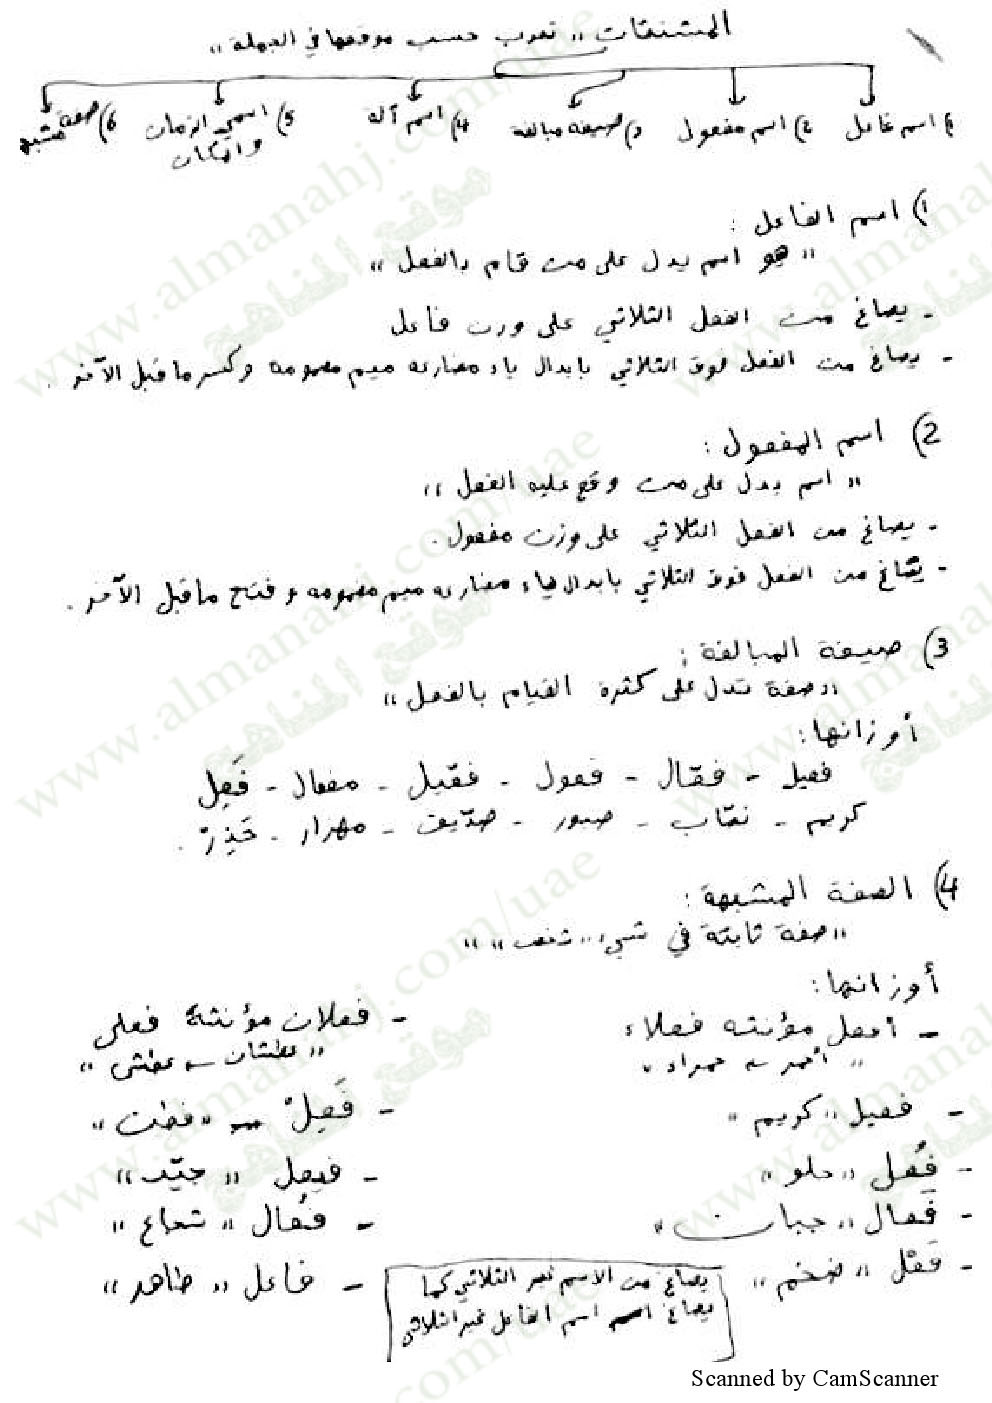 المشتقات " تعرب حسب موقعها في الجملة "
1) اسم فاعل 2) اسم مفعول 3) صيغة مبالغة 4) اسم آلة 5) اسمي الزمان والمكان 6) صفة مشبهة
1) اسم الفاعل :
" هو اسم يدل على من قام بالفعل "
- يصاغ من الفعل الثلاثي على وزن فاعل
- يصاغ من الفعل فوق الثلاثي بابدال ياء مضارعه ميم مضمومه وكسر ما قبل الآخر .
2) اسم المفعول :
" اسم يدل على من وقع عليه الفعل "
- يصاغ من الفعل الثلاثي على وزن مفعول .
- يصاغ من الفعل فوق الثلاثي بابدال ياء مضارعه ميم مضمومه وفتح ما قبل الآخر .
3) صيغة المبالغة :
" صفة تدل على كثرة القيام بالفعل "
أوزانها :
فعيل - فعّال - فعول - فعّيل - مفعال - فَعِل
كريم - نصّاب - صبور - صدّيق - مهزار - حَذِرْ .
4) الصفة المشبهة :
" صفة ثابتة في شيء " شخص " "
أوزانها :
- أفعل مؤنثه فعلاء
" أحمر ← حمراء "
- فعلان مؤنثة فعلى
" عطشان ← عطشى "
- فعيل " كريم "
- فَعِلْ ← " فطن "
- فُعل " حلو "
- فيعِل " جيّد "
- فَعال " جبان "
- فُعال " شجاع "
- فَعْل " ضخم "
- فاعل " طاهر "
يصاغ من الاسم غير الثلاثي كما
يصاغ اسم الفاعل غير الثلاثي
Scanned by CamScanner
www.almanahj.com/uae
موقع المناهج